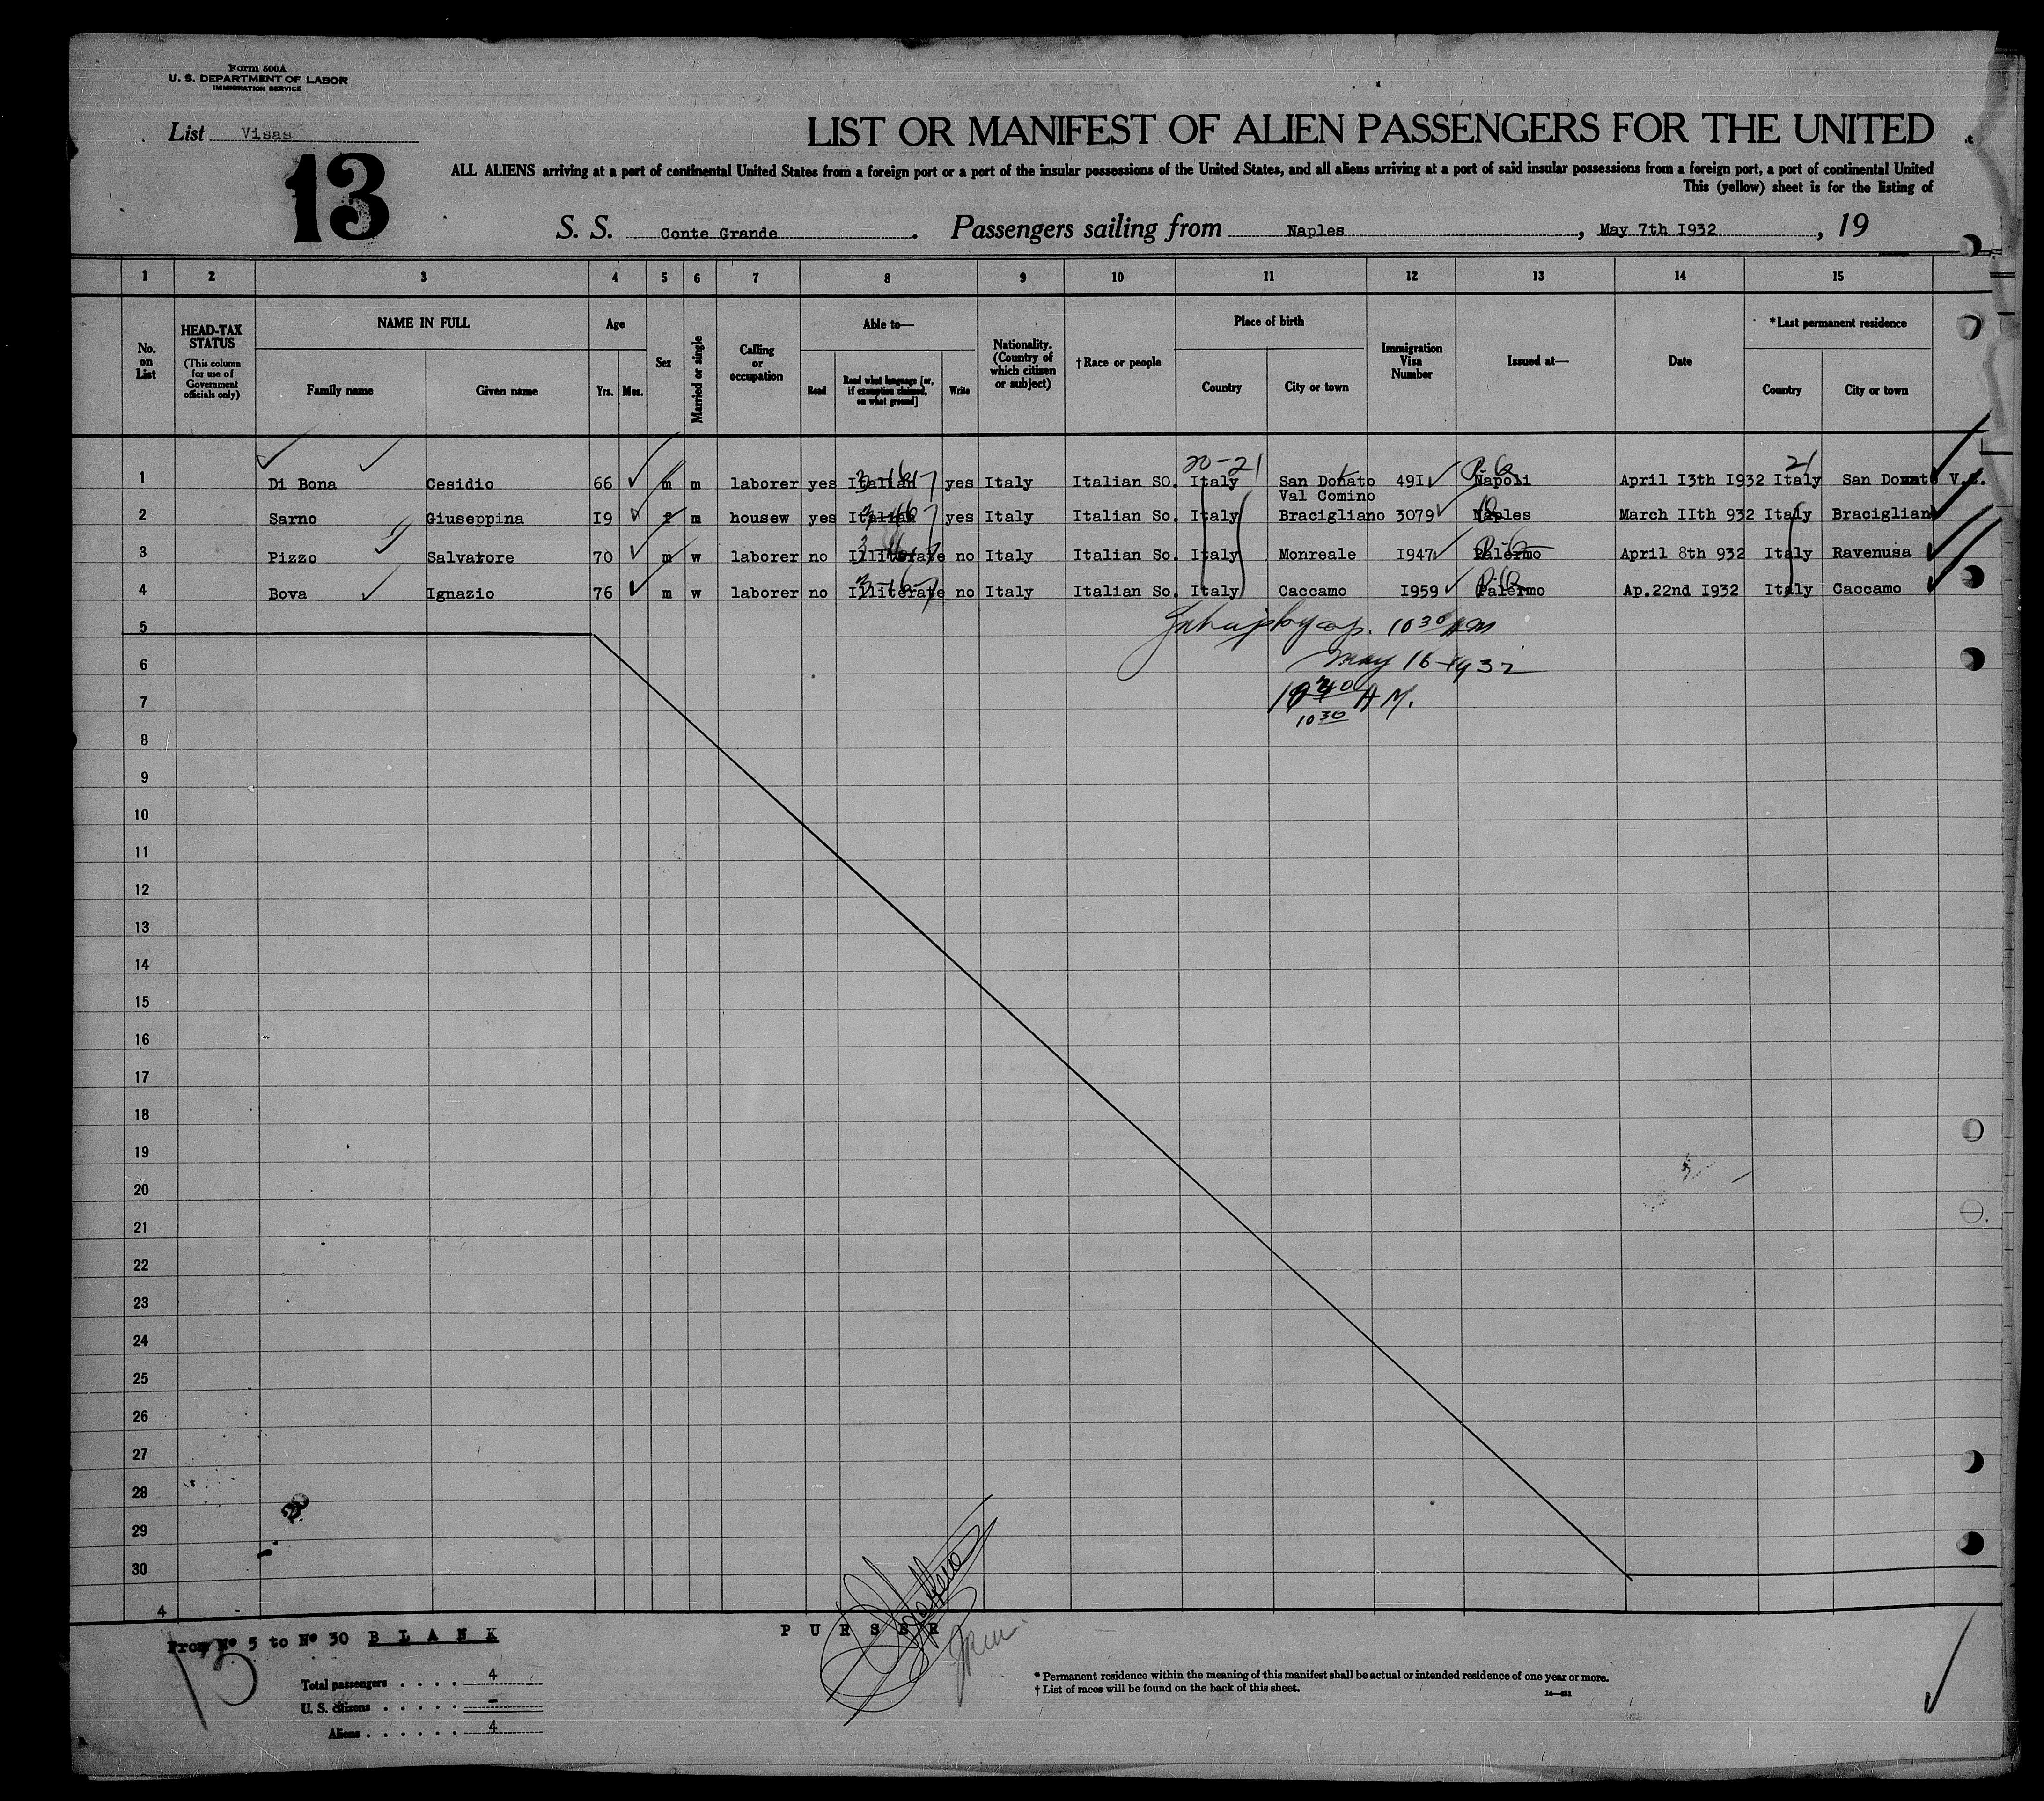 Form 500A
U. S. DEPARTMENT OF LABOR
IMMIGRATION SERVICE
List Visas
13
LIST OR MANIFEST OF ALIEN PASSENGERS FOR THE UNITED
ALL ALIENS arriving at a port of continental United States from a foreign port or a port of the insular possessions of the United States, and all aliens arriving at a port of said insular possessions from a foreign port, a port of continental United
This (yellow) sheet is for the listing of
S. S. Conte Grande. Passengers sailing from Naples, May 7th 1932, 19
1 2 3 4 5 6 7 8 9 10 11 12 13 14 15
No. on List
HEAD-TAX STATUS
(This column for use of Government officials only)
NAME IN FULL
Family name Given name
Age
Yrs. Mos.
Sex
Married or single
Calling or occupation
Able to—
Read
Read what language [or, if exemption claimed, on what ground]
Write
Nationality. (Country of which citizen or subject)
†Race or people
Place of birth
Country City or town
Immigration Visa Number
Issued at—
Date
*Last permanent residence
Country City or town
20-21 21
1 Di Bona Cesidio 66 m m laborer yes Italian yes Italy Italian SO. Italy San Donato 491 Napoli April 13th 1932 Italy San Donato V.C.
Val Comino
2 Sarno Giuseppina I9 f m housew yes Italian yes Italy Italian So. Italy Bracigliano 3079 Naples March IIth 932 Italy Bracigliano
3 Pizzo Salvatore 70 m w laborer no Illiterate no Italy Italian So. Italy Monreale I947 Palermo April 8th 932 Italy Ravenusa
4 Bova Ignazio 76 m w laborer no Illiterate no Italy Italian So. Italy Caccamo I959 Palermo Ap.22nd I932 Italy Caccamo
5
10 30 AM
6
May 16-1932
7
A M.
10 30
8
9
10
11
12
13
14
15
16
17
18
19
20
21
22
23
24
25
26
27
28
29
30
4
From Nº 5 to Nº 30 B L A N K
P U R S E R
Total passengers . . . . 4
U. S. citizens . . . . . . –
Aliens . . . . . . 4
* Permanent residence within the meaning of this manifest shall be actual or intended residence of one year or more.
† List of races will be found on the back of this sheet.